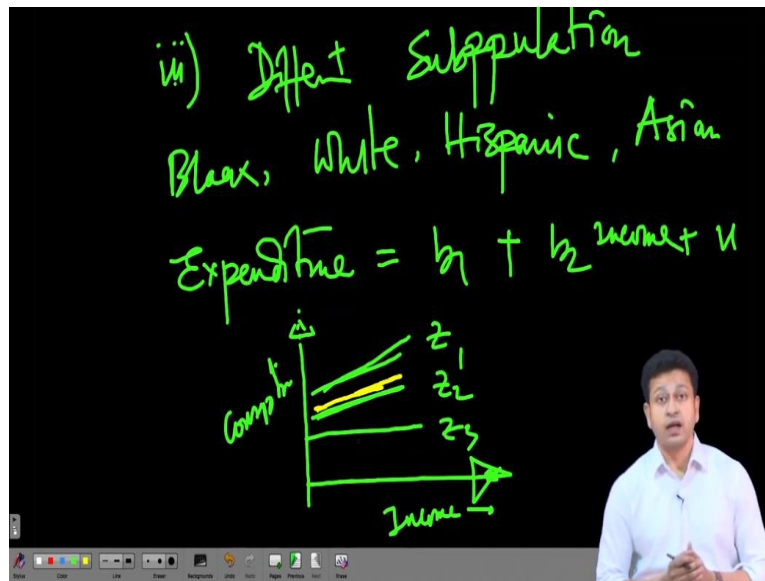 iii) Diffent Subppulation
Black, White, Hispanic, Asian
Expenditure = b1 + b2 Income + u
Z1
Z2
Z3
Consptn
Income →
Stylus Color Line Eraser Backgrounds Undo Redo Pages Previous Next Erase